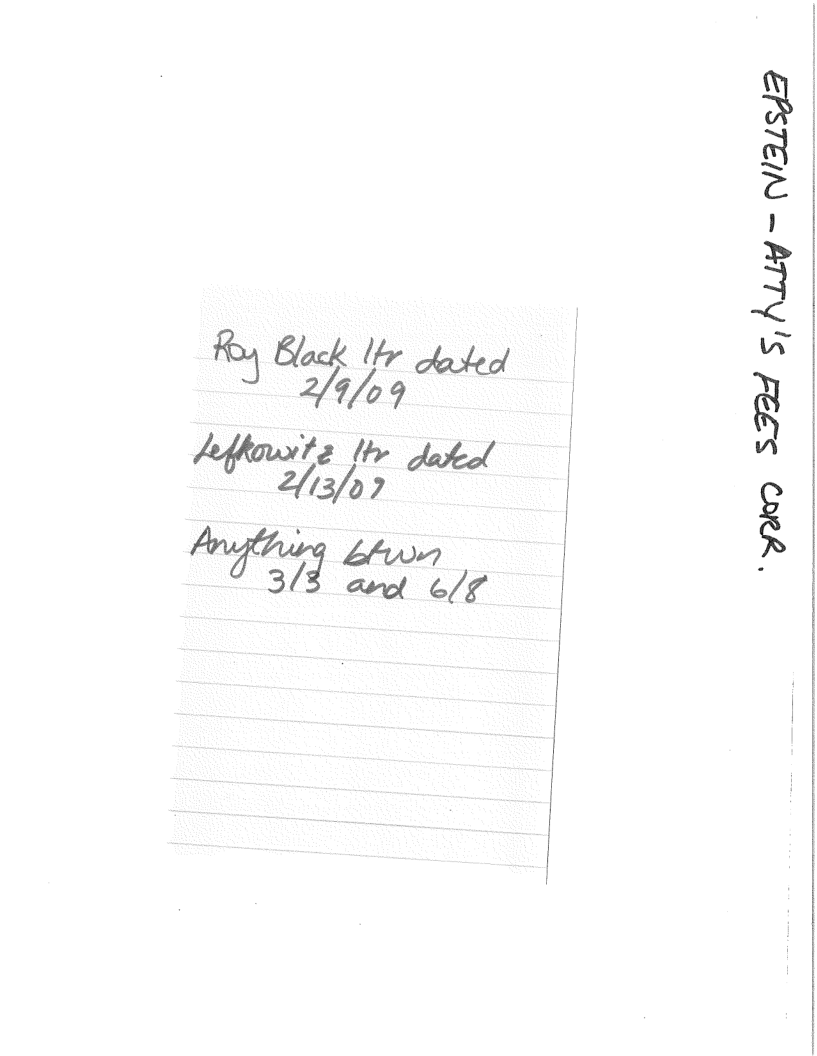 EPSTEIN - ATTY'S FEES CORR.
Roy Black ltr dated
2/9/09
Lefkowitz ltr dated
2/13/09
Anything btwn
3/3 and 6/8